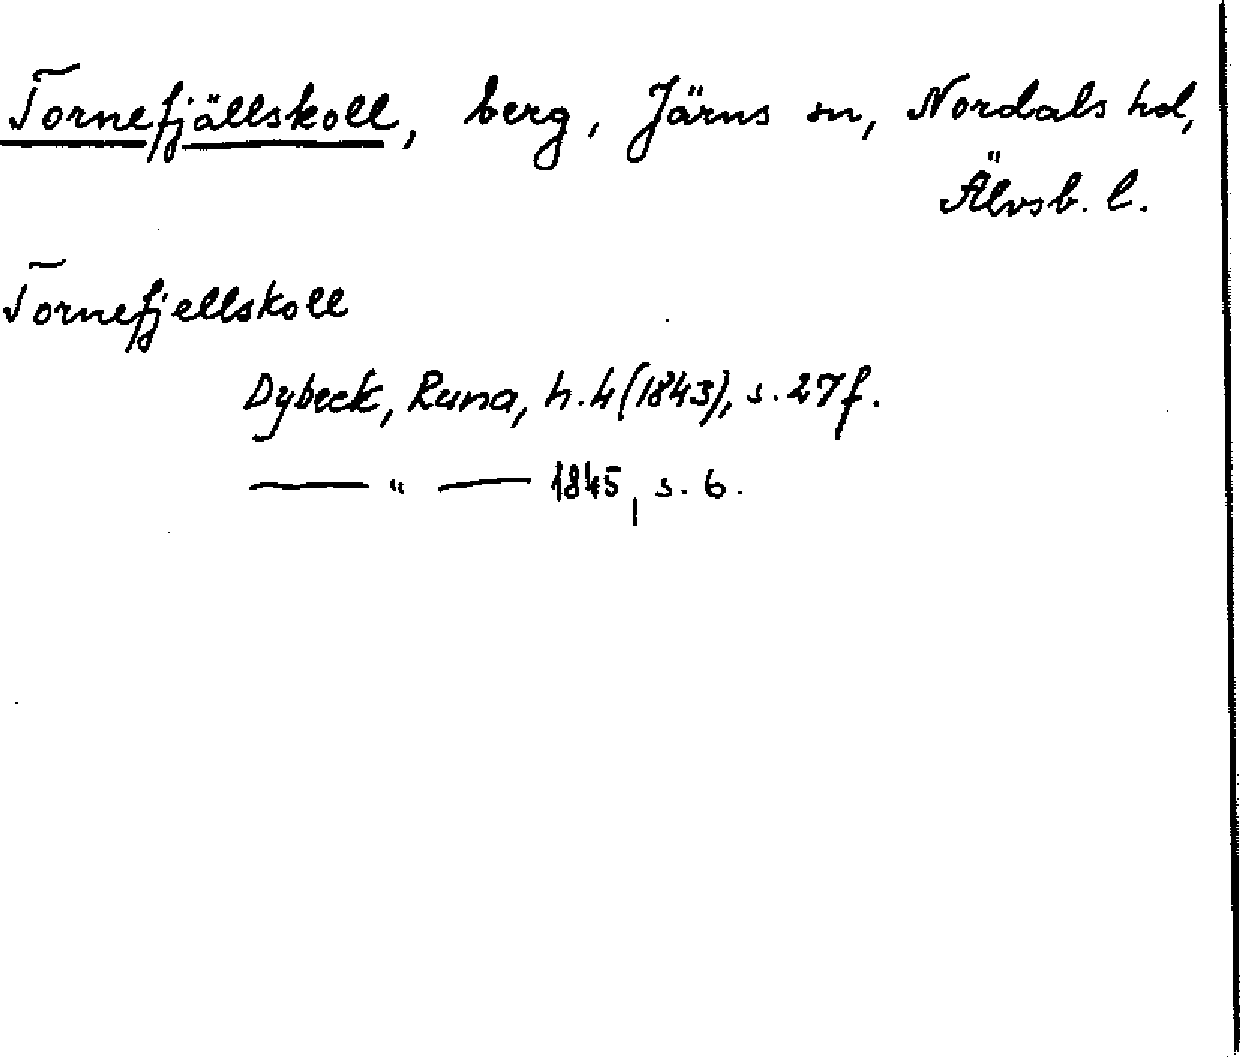 Tornefjällskoll, berg, Järns sn, Nordals hd,
Älvsb. l.
Tornefjellskoll
Dybeck, Runa, h. 4 (1843), s. 27 f.
—— " —— 1845, s. 6.